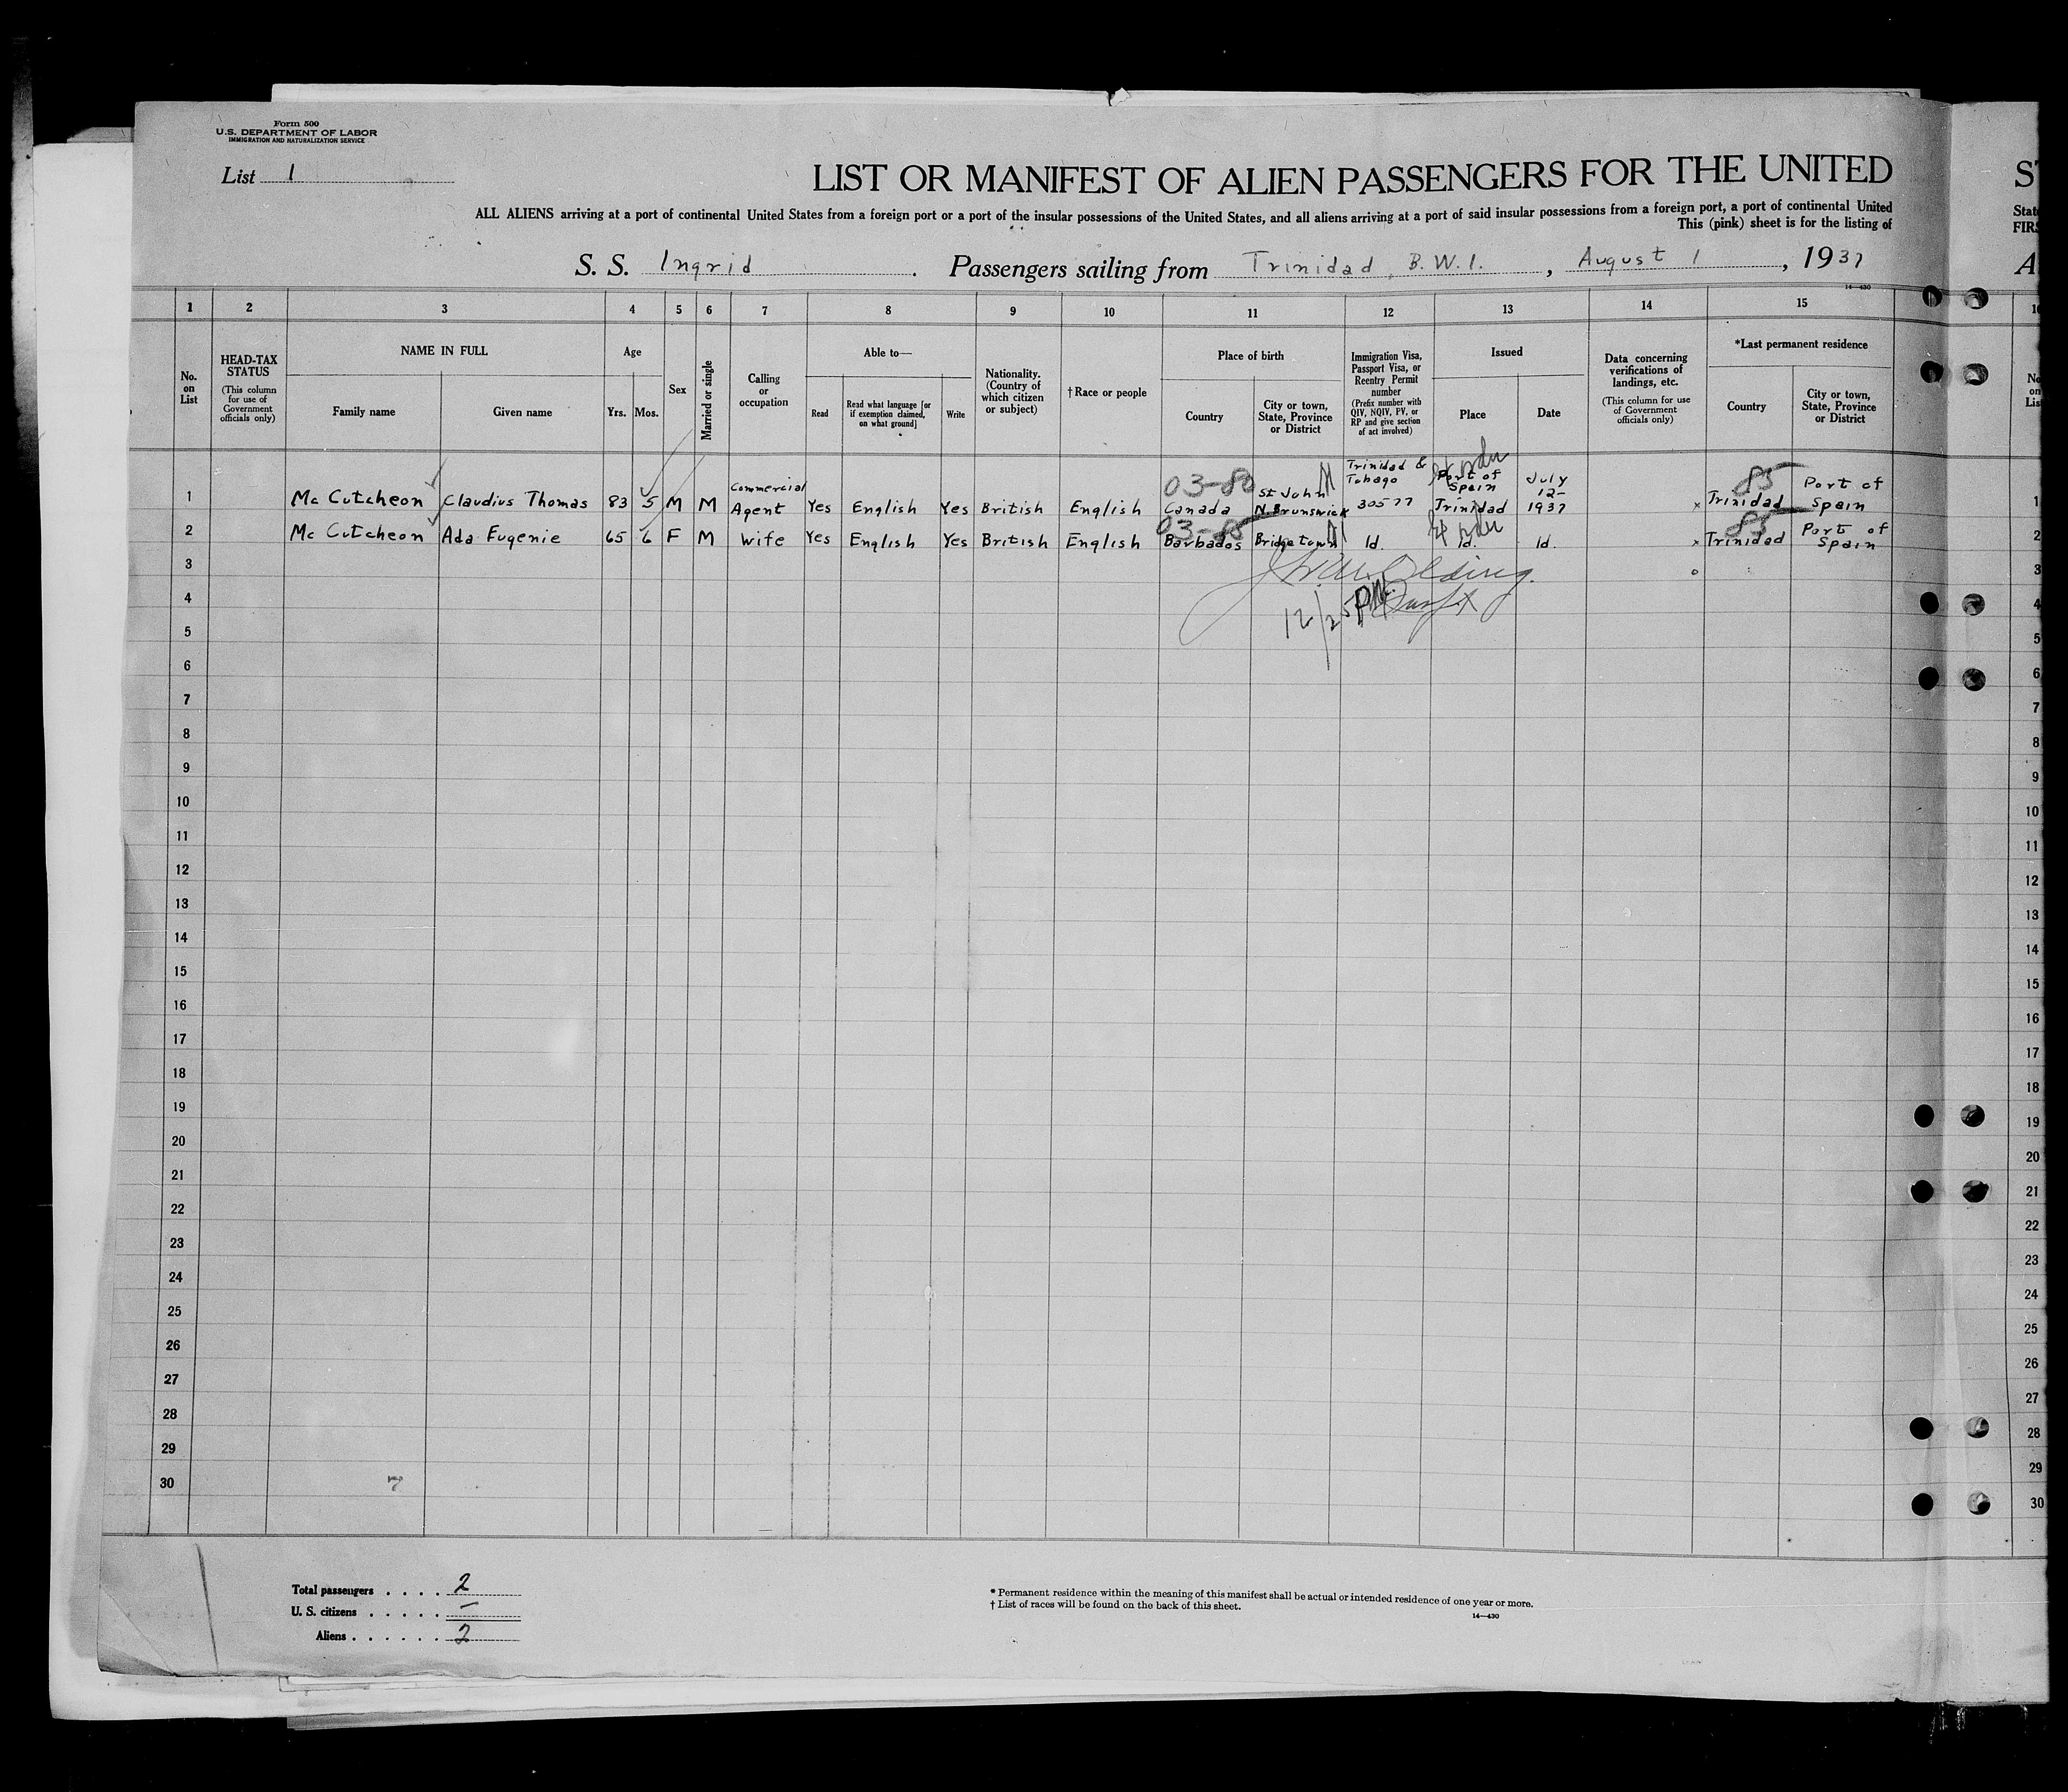 Form 500
U.S. DEPARTMENT OF LABOR
IMMIGRATION AND NATURALIZATION SERVICE
List 1
LIST OR MANIFEST OF ALIEN PASSENGERS FOR THE UNITED
ALL ALIENS arriving at a port of continental United States from a foreign port or a port of the insular possessions of the United States, and all aliens arriving at a port of said insular possessions from a foreign port, a port of continental United
This (pink) sheet is for the listing of
S. S. Ingrid . Passengers sailing from Trinidad, B.W.I. , August 1 , 1937
14—430
1 2 3 4 5 6 7 8 9 10 11 12 13 14 15
No. on List
HEAD-TAX STATUS
(This column for use of Government officials only)
NAME IN FULL
Family name
Given name
Age
Yrs.
Mos.
Sex
Married or single
Calling or occupation
Able to—
Read
Read what language [or if exemption claimed, on what ground]
Write
Nationality. (Country of which citizen or subject)
† Race or people
Place of birth
Country
City or town, State, Province or District
Immigration Visa, Passport Visa, or Reentry Permit number
(Prefix number with QIV, NQIV, PV, or RP and give section of act involved)
Issued
Place
Date
Data concerning verifications of landings, etc.
(This column for use of Government officials only)
*Last permanent residence
Country
City or town, State, Province or District
1 Mc Cutcheon Claudius Thomas 83 5 M M Commercial Agent Yes English Yes British English 03-80 Canada St John N. Brunswick Trinidad & Tobago 30577 Port of Spain Trinidad July 12- 1937 x 85 Trinidad Port of Spain 1
2 Mc Cutcheon Ada Eugenie 65 6 F M Wife Yes English Yes British English 03-85 Barbados Bridgetown Id. Id. Id. x 85 Trinidad Port of Spain 2
3 3
4 12/25 PM 4
5 5
6 6
7 7
8 8
9 9
10 10
11 11
12 12
13 13
14 14
15 15
16 16
17 17
18 18
19 19
20 20
21 21
22 22
23 23
24 24
25 25
26 26
27 27
28 28
29 29
30 7 30
Total passengers . . . . 2
U. S. citizens . . . . . –
Aliens . . . . . . 2
* Permanent residence within the meaning of this manifest shall be actual or intended residence of one year or more.
† List of races will be found on the back of this sheet.
14—430